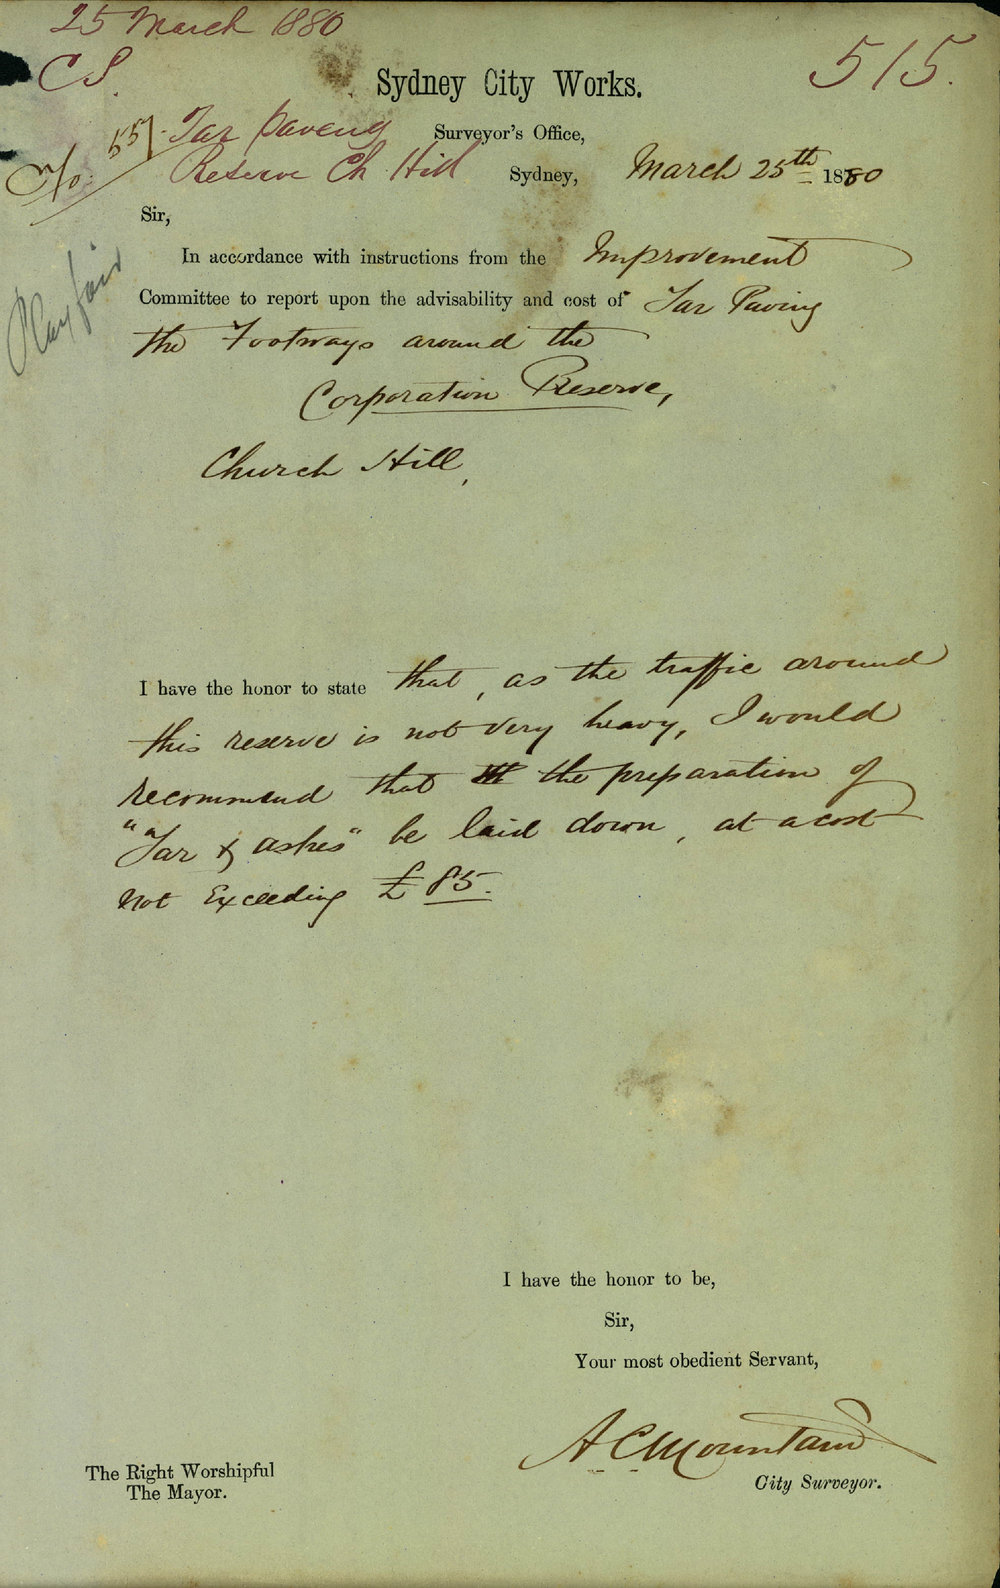 25 March 1880
CS.
515.
Sydney City Works.
557. Tar paveng
Surveyor's Office,
Reserve Ch Hill
Sydney, March 25th 1880
Sir,
Playfair
In accordance with instructions from the Improvement
Committee to report upon the advisability and cost of Tar Paving
the Footways around the
Corporation Reserve,
Church Hill,
I have the honor to state that, as the traffic around
this reserve is not very heavy, I would
recommend that the preparation of
"Tar & ashes" be laid down, at a cost
not Exceeding £85.
I have the honor to be,
Sir,
Your most obedient Servant,
A C Mountain
City Surveyor.
The Right Worshipful
The Mayor.